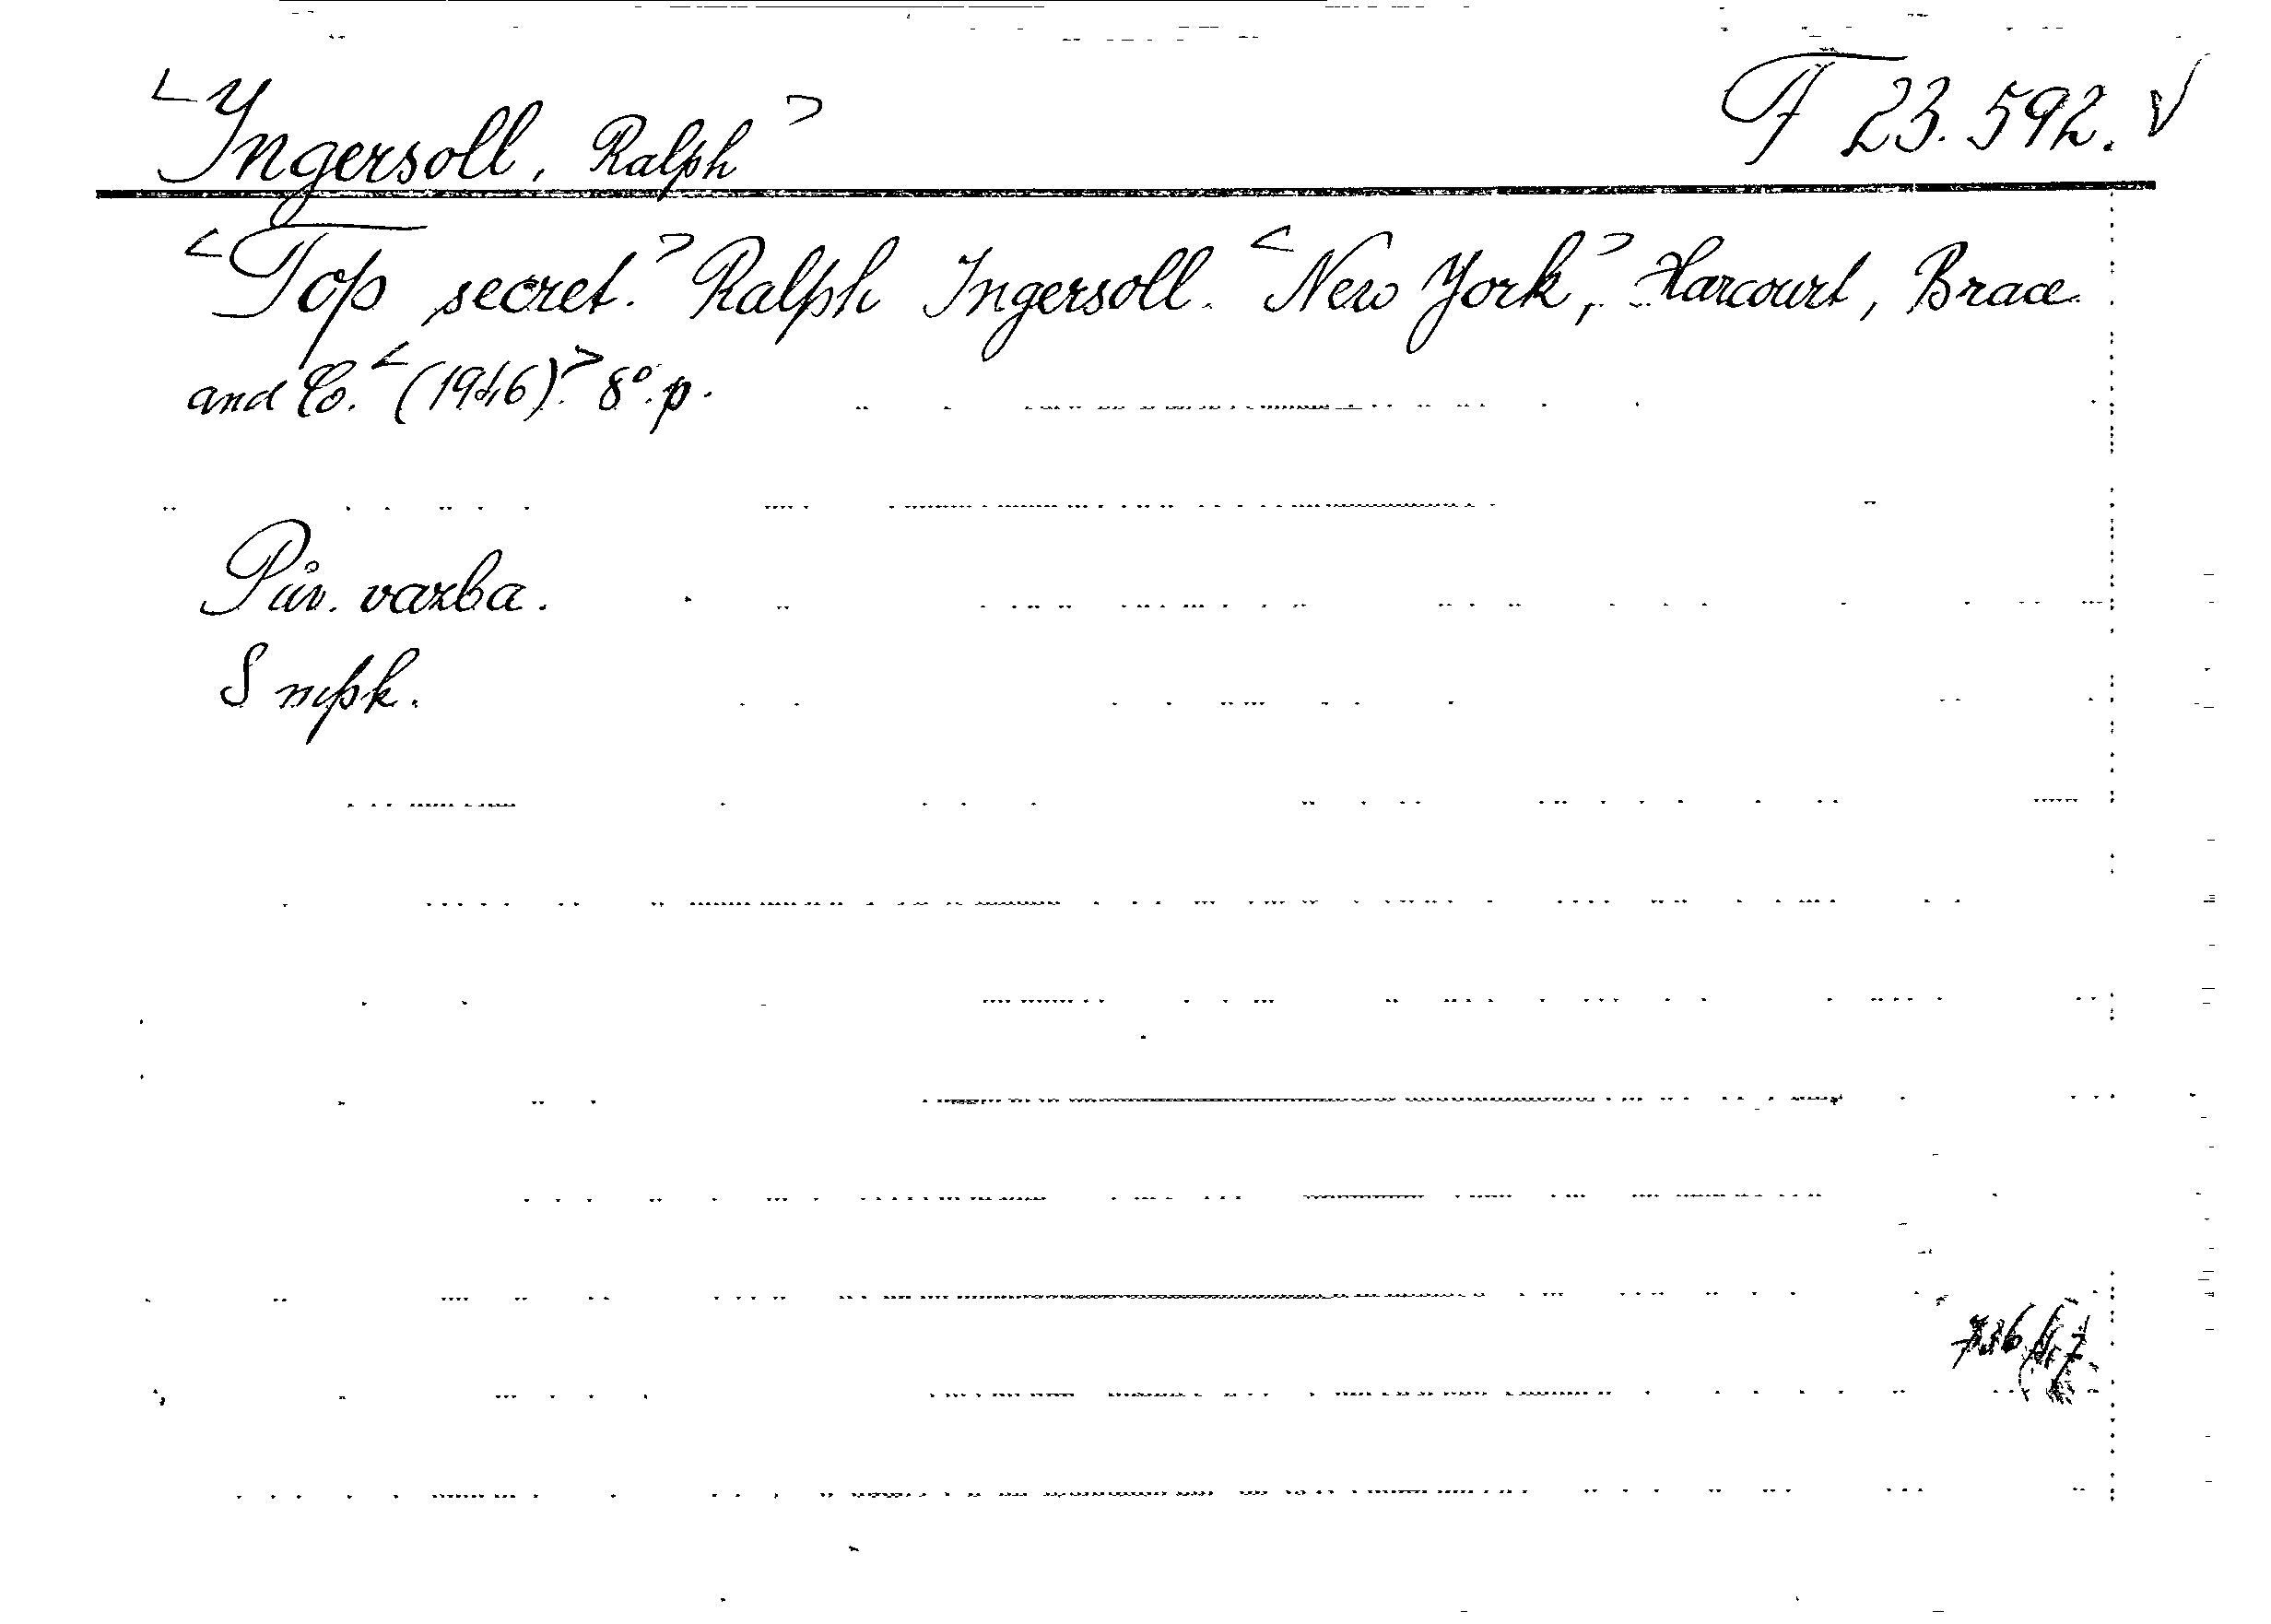 <Ingersoll, Ralph> F 23.592. √
<Top secret.> Ralph Ingersoll. <New York,> Harcourt, Brace
and Co. <(1946).> 8°. p.
Pův. vazba.
S mpk.